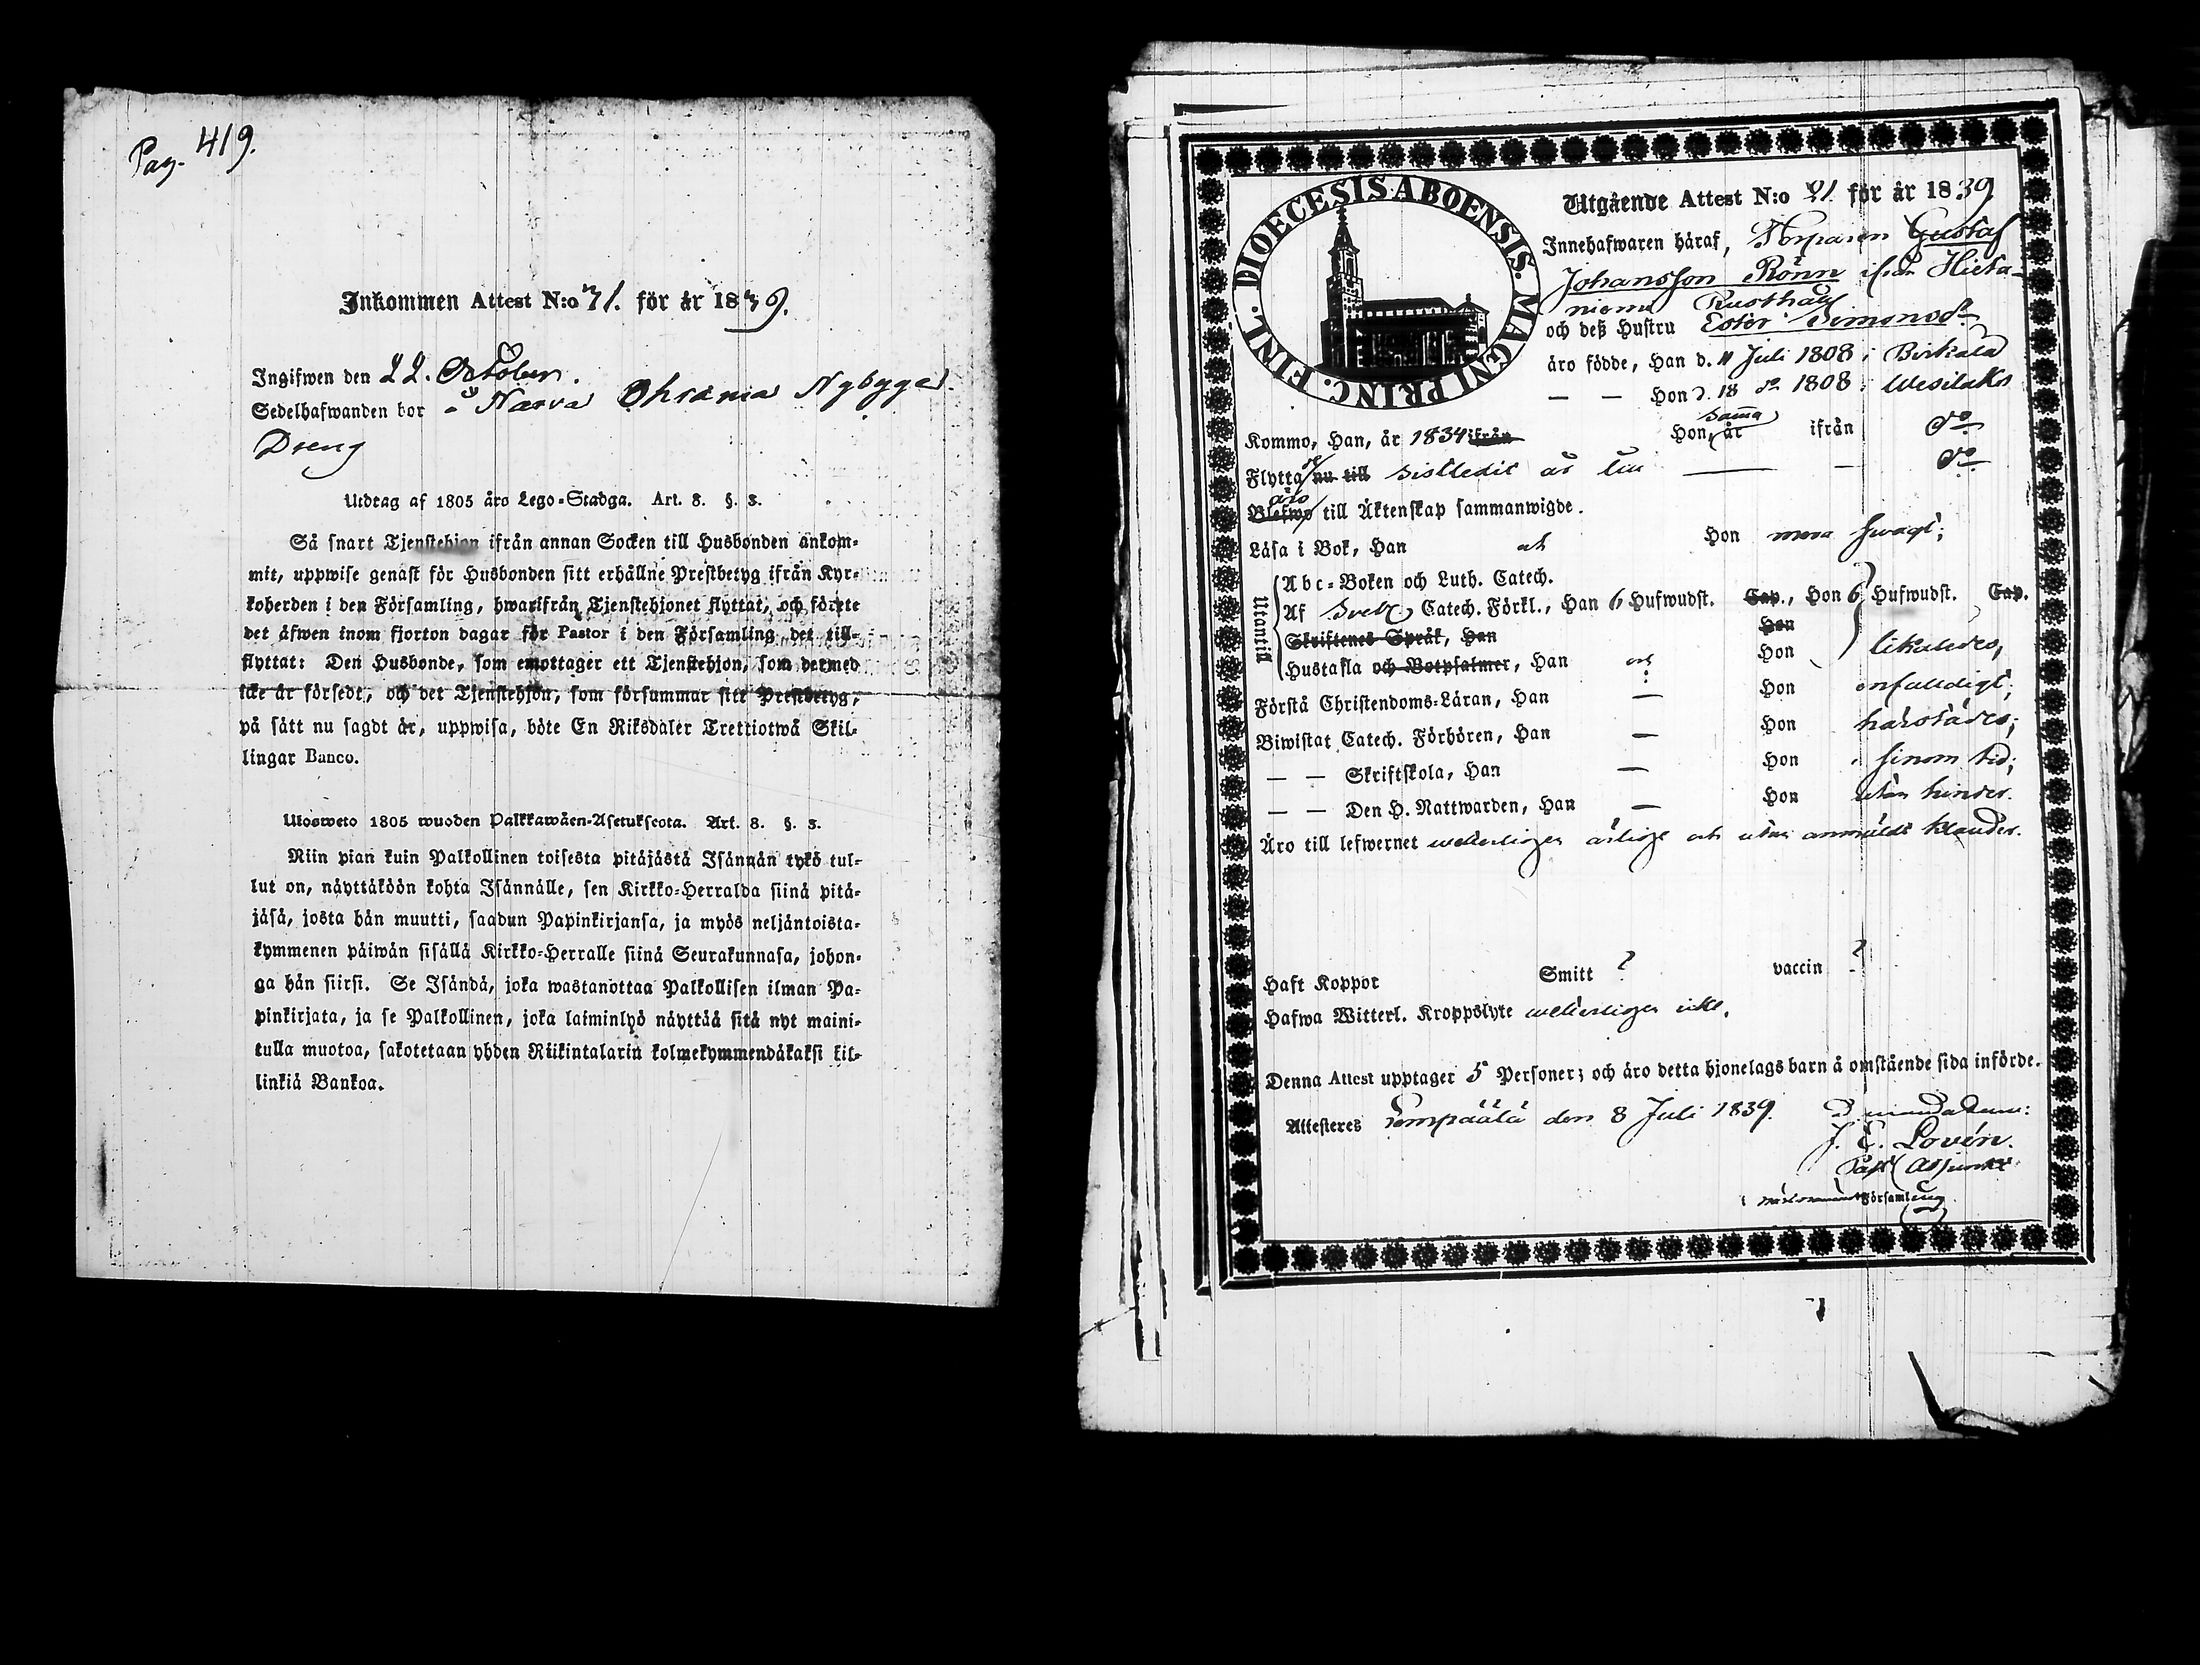 Pag. 419.
Inkommen Attest N:o 71. för år 1839.
Ingifwen den 22. October.
Sedelhafwanden bor å Narva Ohrania Nybygge
Dreng
Utdrag af 1805 års Lego-Stadga. Art. 8. §. 3.
Så snart Tjenstehjon ifrån annan Socken till Husbonden ankom-
mit, uppwise genast för Husbonden sitt erhållne Prestbetyg ifrån Kyr-
koherden i den Församling, hwarifrån Tjenstehjonet flyttat, och förete
det äfwen inom fjorton dagar för Pastor i den Församling det till-
flyttat: Den Husbonde, som emottager ett Tjenstehjon, som dermed
icke är försedt, och det Tjenstehjon, som försummar sitt Prestbetyg,
på sätt nu sagdt är, uppwisa, böte En Riksdaler Trettiotwå Skil-
lingar Banco.
Ulosweto 1805 wuoden Palkkawäen-Asetuksesta. Art. 8. §. 3.
Niin pian kuin Palkollinen toisesta pitäjästä Isännän tykö tul-
lut on, näyttäköön kohta Isännälle, sen Kirkko-Herralda siinä pitä-
jäsä, josta hän muutti, saadun Papinkirjansa, ja myös neljäntoista-
kymmenen päiwän sisällä Kirkko-Herralle siinä Seurakunnasa, johon-
ga hän siirsi. Se Isändä, joka wastanottaa Palkollisen ilman Pa-
pinkirjata, ja se Palkollinen, joka laiminlyö näyttää sitä nyt maini-
tulla muotoa, sakotetaan yhden Riikintalarin kolmekymmendäkaksi kil-
linkiä Bankoa.
DIOECESIS ABOENSIS. MAGNI PRINC. FINL.
Utgående Attest N:o 91 för år 1839
Innehafwaren häraf, Torparen Gustaf
Johansson Rönn ifrån Hieta-
niemi Rusthåll
och deß Hustru Ester Simonsdr
äro födde, Han d. 11 Juli 1808 i Birkala
— — Hon d. 18 do 1808 i Wesilaks
Kommo, Han, år 1834 ifrån Hon, samma år ifrån do
Flytta nu till sistledit år till — — do
Blefwo äro till Äktenskap sammanwigde.
Läsa i Bok, Han och Hon mera swagt;
Utantill
Abc-Boken och Luth. Catech.
Af Sveb. Catech. Förkl., Han 6 Hufwudst. Cap., Hon 6 Hufwudst. Cap.
Skriftenes Språk, Han Hon
Hustafla och Botpsalmer, Han och Hon likaledes;
Förstå Christendoms-Läran, Han — Hon enfaldigt;
Biwistat Catech. Förhören, Han — Hon härstädes;
— — Skriftskola, Han — Hon i sinom tid;
— — Den H. Nattwarden, Han — Hon utan hinder.
Äro till lefwernet weterligen ärlige och utan anmäldt klander.
Haft Koppor Smitt ? vaccin ?
Hafwa Witterl. Kroppslyte weterligen icke.
Denna Attest upptager 5 Personer; och äro detta hjonelags barn å omstående sida införde.
Attesteres Lempäälä den 8 Juli 1839. ad mandatum:
J. E. Lovén.
Past. Adjunkt
i Församling